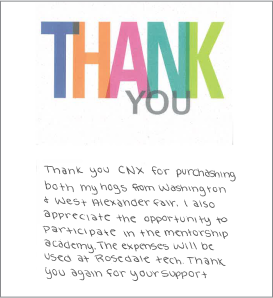 THANK
YOU
Thank you CNX for purchashing
both my hogs from Washington
+ West Alexander fair. I also
appreciate the opportunity to
participate in the mentorship
academy. The expenses will be
used at Rosedale tech. Thank
you again for your support